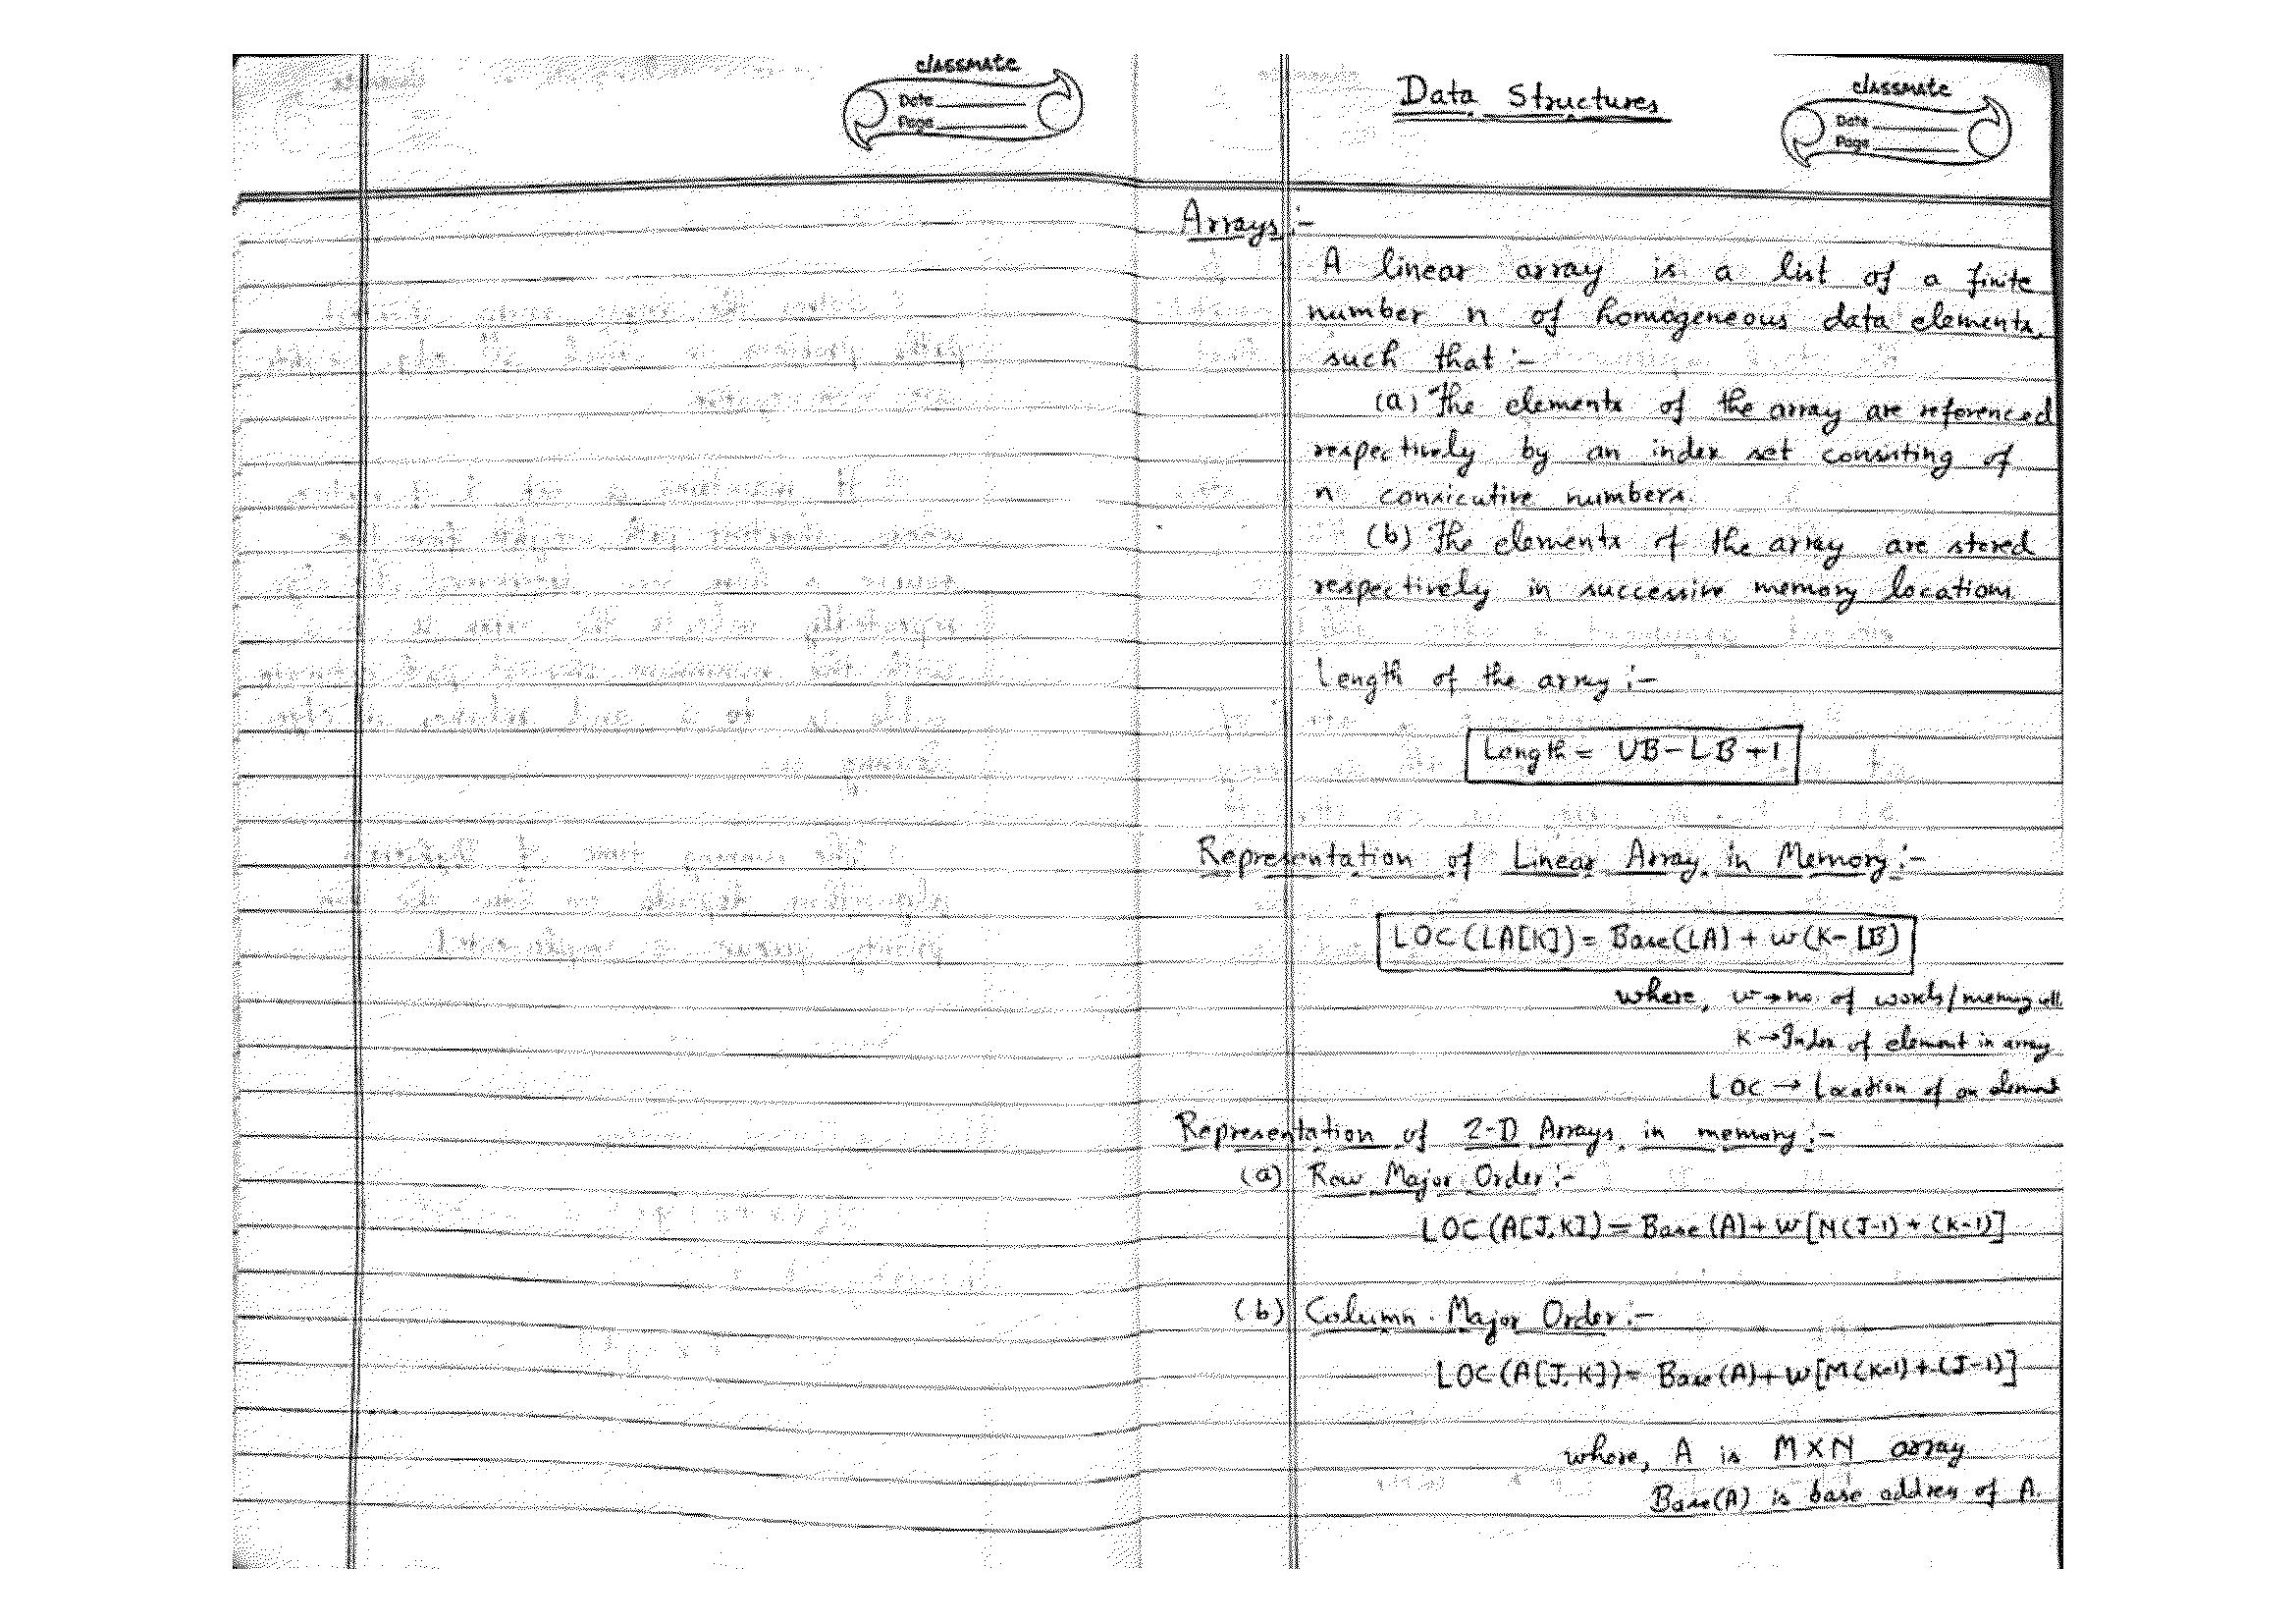 classmate
Date
Page
Data Structures
classmate
Date
Page
Arrays:-
A linear array is a list of a finite
number n of homogeneous data elements,
such that :-
(a) The elements of the array are referenced
respectively by an index set consisting of
n consicutive numbers.
(b) The elements of the array are stored
respectively in successive memory locations
Length of the array :-
Length = UB-LB+1
Representation of Linear Array in Memory:-
LOC (LA[K]) = Base(LA) + w(K-LB)
where, w→no. of words/memory cell
K→Index of element in array
LOC → Location of an element
Representation of 2-D Arrays in memory:-
(a) Row Major Order :-
LOC (A[J,K]) = Base (A) + w[N(J-1) + (K-1)]
(b) Column Major Order:-
LOC (A[J,K]) = Base (A) + w[M(K-1) + (J-1)]
where, A is M×N array
Base(A) is base address of A.